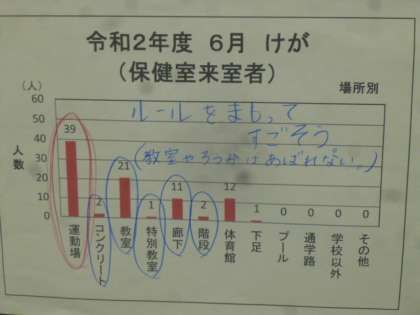 令和2年度 6月 けが
(保健室来室者)
(人)
場所別
ルールをまもって
すごそう
(教室やろうかはあばれない。)
人数
60
50
40
30
20
10
0
39
2
21
1
11
2
12
1
0
0
0
0
運動場
コンクリート
教室
特別教室
廊下
階段
体育館
下足
プール
通学路
学校以外
その他